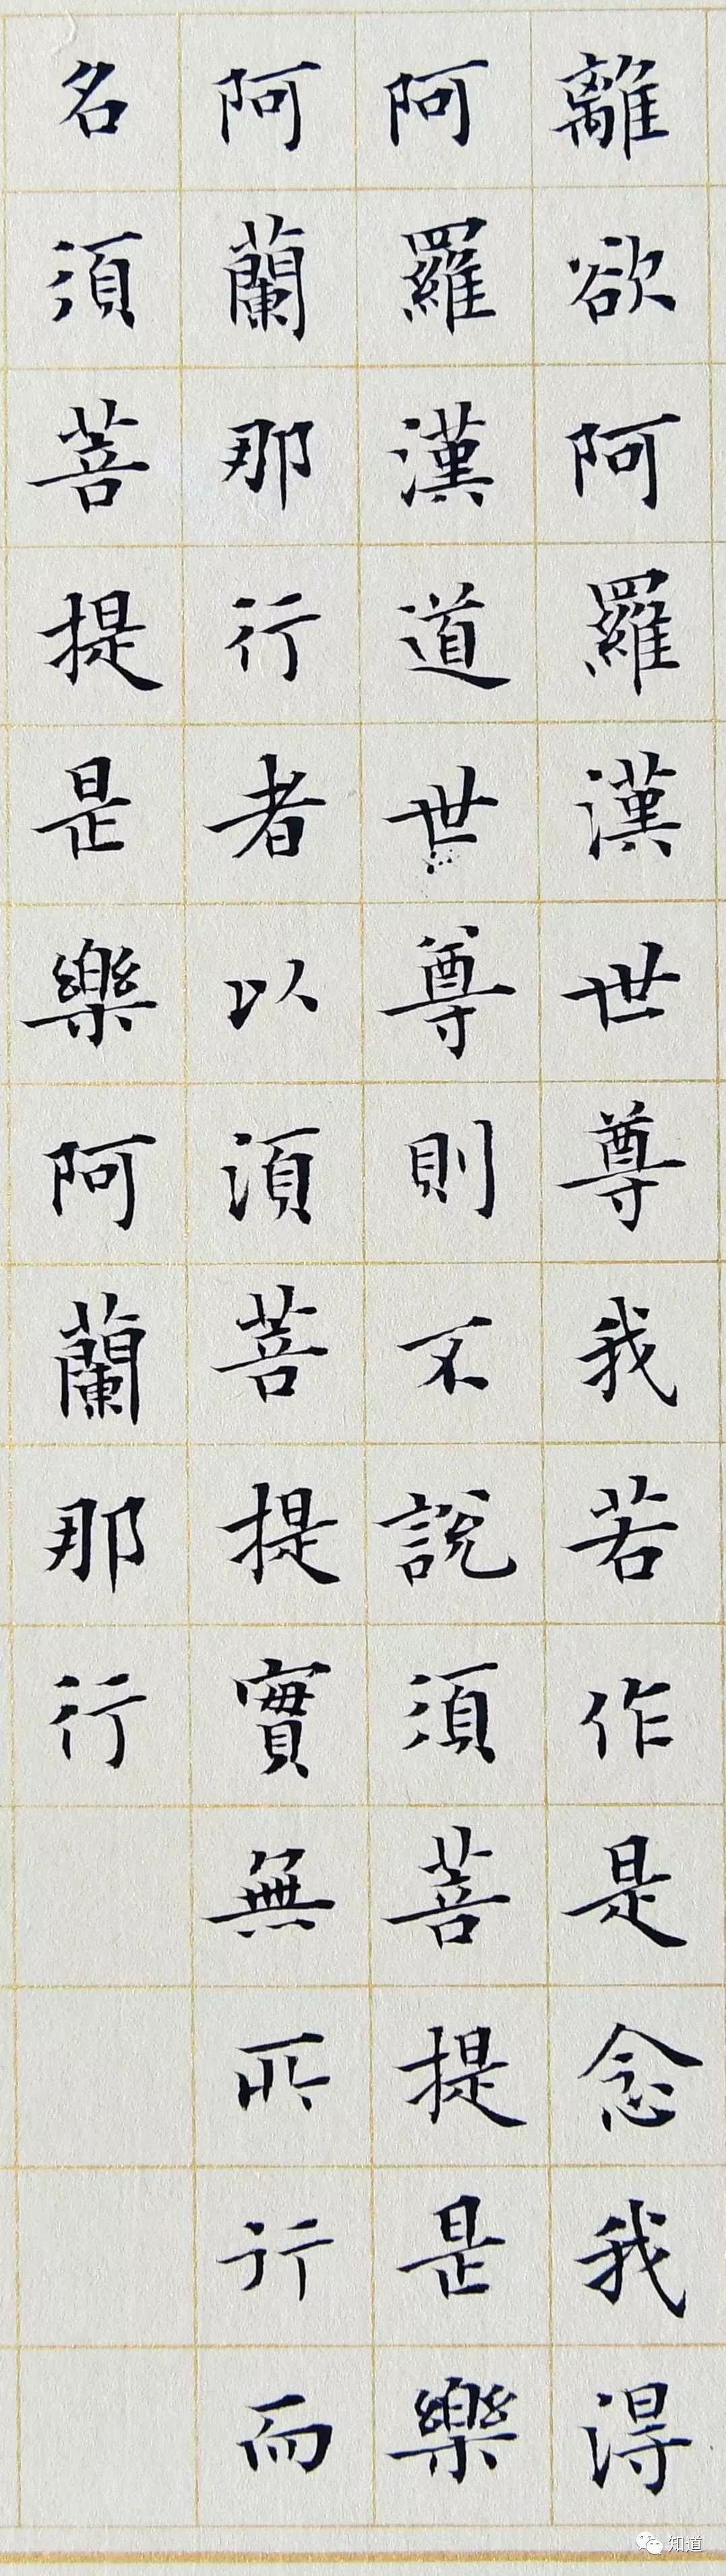 離欲阿羅漢世尊我若作是念我得
阿羅漢道世尊則不說須菩提是樂
阿蘭那行者以須菩提實無所行而
名須菩提是樂阿蘭那行
知道